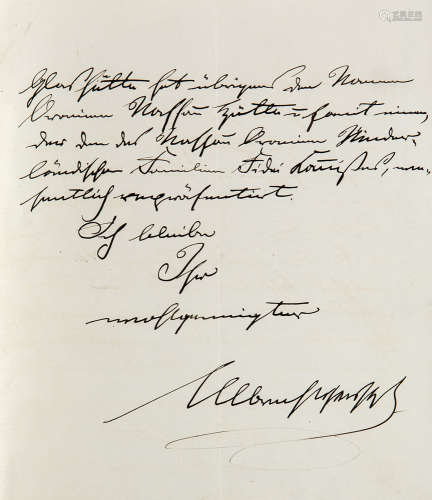 Glashütte hat übrigens den Namen
Oranien Nassau Hütte u. somit einen,
der den des Nassau Oranien Nieder-
ländischen Familien Fidei Kommißes,
sentlich repräsentirt.
Ich bleibe
Ihr
wohlgeneigter
Albrecht